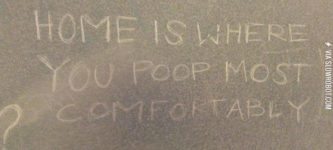 HOME IS WHERE
YOU POOP MOST
COMFORTABLY
?
VIA SLOWROBOT.COM